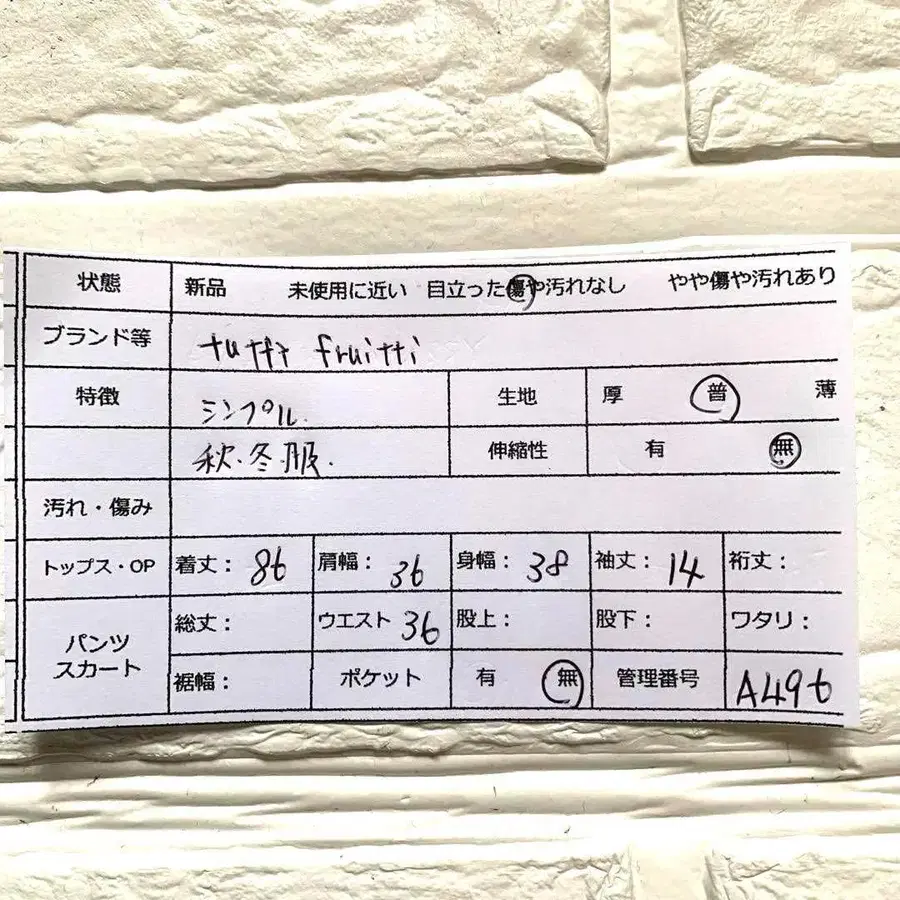 状態 新品 未使用に近い 目立った傷や汚れなし やや傷や汚れあり
ブランド等 tutti fruitti
特徴 シンプル. 生地 厚 普 薄
秋.冬.服. 伸縮性 有 無
汚れ・傷み
トップス・OP 着丈: 86 肩幅: 36 身幅: 38 袖丈: 14 裄丈:
パンツ スカート 総丈: ウエスト 36 股上: 股下: ワタリ:
裾幅: ポケット 有 無 管理番号 A496